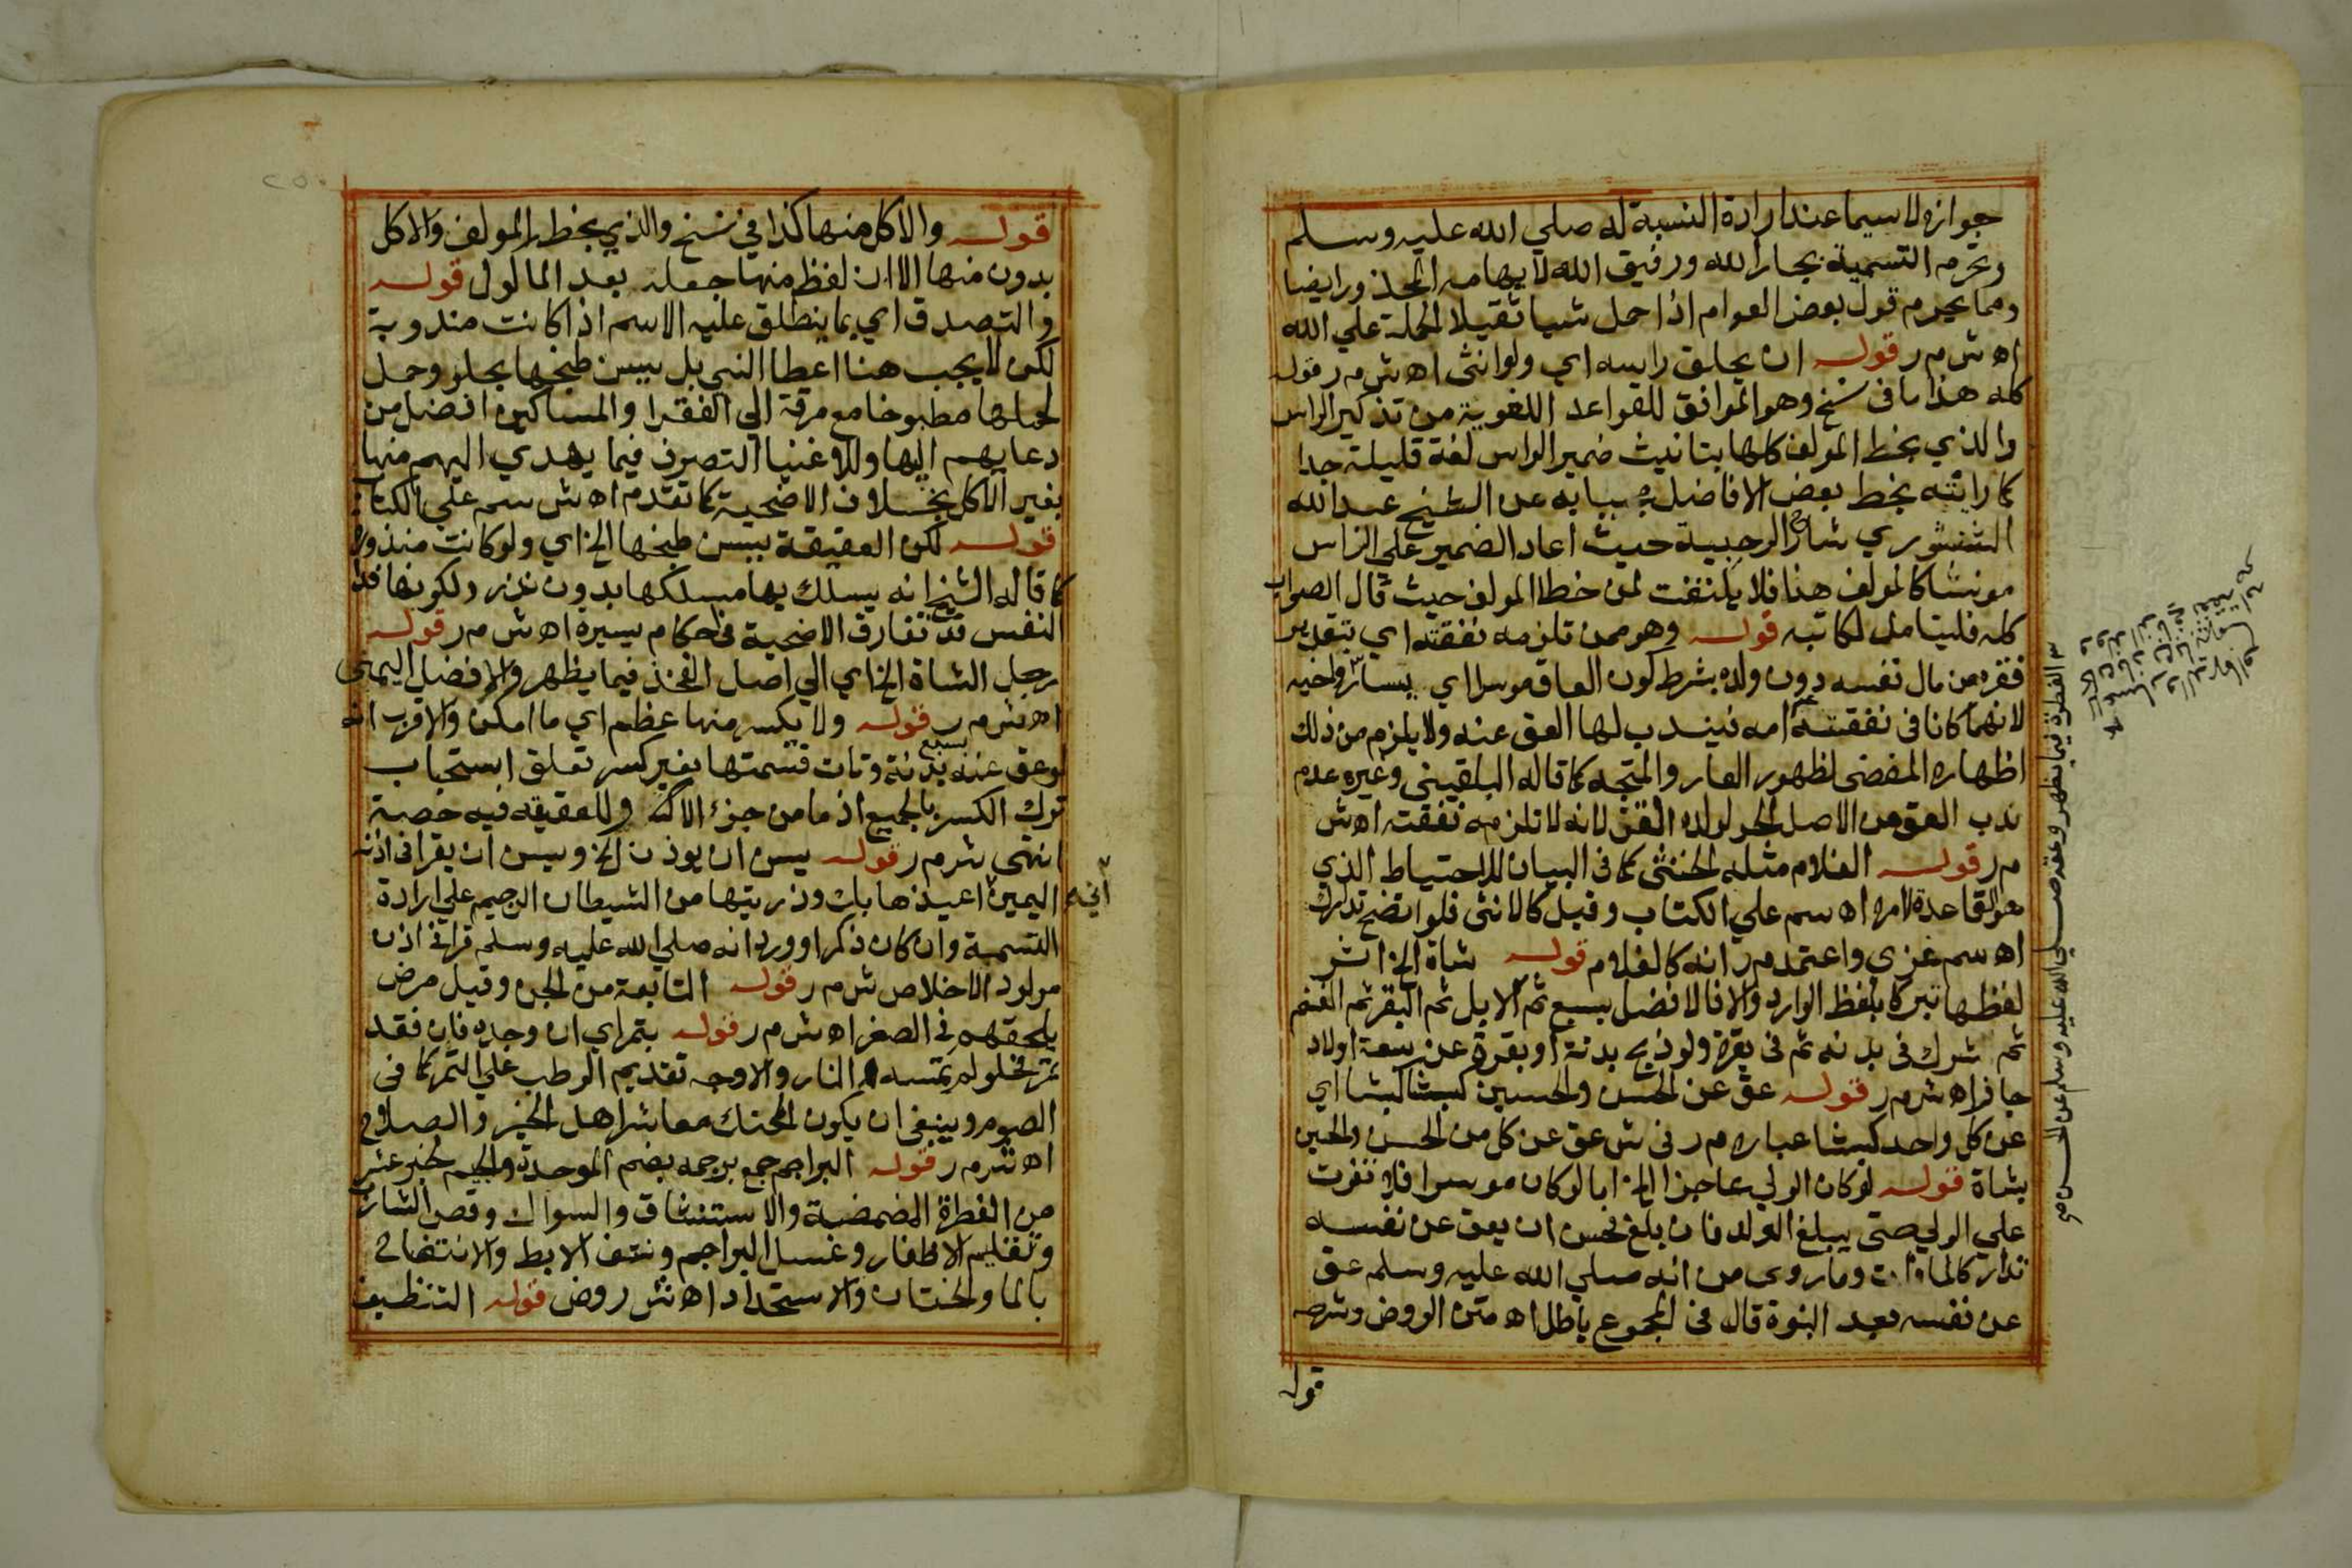 جوازه لاسيما عند ارادة النسبة له صلي الله عليه وسلم
وتحرم التسمية بجار الله ورفيق الله لايهامه المحذور ايضا
ومما يحرم قول بعض العوام اذا حمل شيا ثقيلا الحملة علي الله
اه ش م ر قوله ان يحلق راسه اي ولو انثى اه ش م ر قوله
كله هذا ما فى نسخ وهو الموافق للقواعد اللغوية من تذكير الراس
والذي بخط المولف كلها بتانيث ضمير الراس لغة قليلة جدا
كما رايته بخط بعض الافاضل عن الشيخ عبد الله
الشنشوري شارح الرحبية حيث اعاد الضمير على الراس
مونثا كالمولف هنا فلا يلتفت لمن خطا المولف حيث قال الصواب
كله فليتامل لكاتبه قوله وهو ممن تلزمه نفقته اي بتقدير
فقره من مال نفسه دون ولده بشرط كون العاق موسرا اي
لانهما كانا فى نفقة امه فيندب لها العق عنه ولا يلزم من ذلك
اظهاره المفضى لظهور العار والمتجه كما قاله البلقينى وغيره عدم
ندب العق من الاصل الحر لولده القن لانه لا تلزمه نفقته اه ش
م ر قوله الغلام مثله الخنثى كما فى البيان للاحتياط الذي
هو القاعدة لامره اه سم علي الكتاب وقيل كالانثى فلو اتضح تدارك
اه سم غزي واعتمد م ر انه كالغلام قوله شاة الخ اثر
لفظها تبركا بلفظ الوارد والا فالافضل سبع ثم الابل ثم البقر ثم الغنم
ثم شرك فى بدنه ثم فى بقرة ولو ذبح بدنة او بقرة عن سبعة اولاد
جاز اه ش م ر قوله عق عن الحسن والحسين كبشا كبشا اي
عن كل واحد كبشا عباره م ر فى ش عق عن كل من الحسن والحسين
بشاة قوله لو كان الولي عاجزا الخ اما لو كان موسرا فلا تفوت
علي الولي حتى يبلغ الولد فان بلغ فحسن ان يعق عن نفسه
تداركا لما فات وما روى من انه صلي الله عليه وسلم عق
عن نفسه بعد النبوة قال فى المجموع باطل اه متن الروض وشرحه
قوله
قوله والاكل منها كذا في نسخ والذي بخط المولف والاكل
بدون منها الا ان لفظ منها جعله بعد الماكول قوله
والتصدق اي بما ينطلق عليه الاسم اذا كانت مندوبة
لكن لا يجب هنا اعطا النيي بل يسن طبخها بحلو وحمل
لحمها مطبوخا مع مرقة الي الفقرا والمساكين افضل من
دعايهم اليها وللاغنيا التصرف فيما يهدي اليهم منها
بغير الاكل بخلاف الاضحية كما تقدم اه ش سم علي الكتاب
قوله لكن العقيقة يسن طبخها الخ اي ولو كانت منذورة
كما قاله الشيخ انه يسلك بها مسلكها بدون نذر ولكونها فدا
النفس قد تفارق الاضحية فى احكام يسيرة اه ش م ر قوله
رجل الشاة الخ اي الي اصل الفخذ فيما يظهر والافضل اليمنى
اه ش م ر قوله ولا يكسر منها عظم اي ما امكن والاقرب انه
لو عق عنه بسبع بدنة وتات قسمتها بغير كسر تعلق استحباب
ترك الكسر بالجميع اذ ما من جزء الا وللعقيقه فيه حصة
انتهى ش م ر قوله يسن ان يوذن الخ ويسن ان يقرا فى اذنه
اليمين اعيذها بك وذريتها من الشيطان الرجيم علي ارادة
التسمية وان كان ذكرا وورد انه صلي الله عليه وسلم قرا في اذن
مولود الاخلاص ش م ر قوله التابعة من الجن وقيل مرض
يلحقهم في الصغر اه ش م ر قوله بتمر اي ان وجده فان فقد
تمر فحلو لم تمسه النار والاوجه تقديم الرطب علي التمر كما فى
الصوم وينبغى ان يكون المحنك معاشر اهل الخير والصلاح
اه ش م ر قوله البراجم جمع برجمه بضم الموحدة والجيم لخبر عشر
من الفطرة المضمضة والاستنشاق والسواك وقص الشارب
وتقليم الاظفار وغسل البراجم ونتف الابط والانتضاح
بالما والختان والاستحداد اه ش روض قوله التنظيف